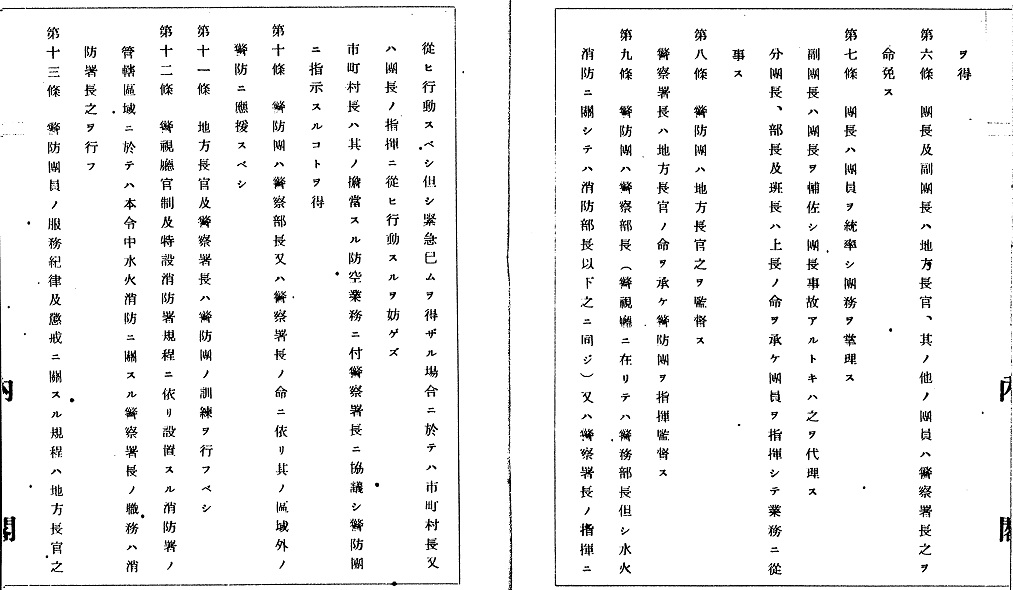 ヲ得
第六條　團長及副團長ハ地方長官、其ノ他ノ團員ハ警察署長之ヲ
命免ス
第七條　團長ハ團員ヲ統率シ團務ヲ掌理ス
副團長ハ團長ヲ輔佐シ團長事故アルトキハ之ヲ代理ス
分團長、部長及班長ハ上長ノ命ヲ承ケ團員ヲ指揮シテ業務ニ從
事ス
第八條　警防團ハ地方長官之ヲ監督ス
警察署長ハ地方長官ノ命ヲ承ケ警防團ヲ指揮監督ス
第九條　警防團ハ警察部長（警視廳ニ在リテハ警務部長但シ水火
消防ニ關シテハ消防部長以下之ニ同ジ）又ハ警察署長ノ指揮ニ
從ヒ行動スベシ但シ緊急已ムヲ得ザル場合ニ於テハ市町村長又
ハ團長ノ指揮ニ從ヒ行動スルヲ妨ゲズ
市町村長ハ其ノ擔當スル防空業務ニ付警察署長ニ協議シ警防團
ニ指示スルコトヲ得
第十條　警防團ハ警察部長又ハ警察署長ノ命ニ依リ其ノ區域外ノ
警防ニ應援スベシ
第十一條　地方長官及警察署長ハ警防團ノ訓練ヲ行フベシ
第十二條　警視廳官制及特設消防署規程ニ依リ設置スル消防署ノ
管轄區域ニ於テハ本令中水火消防ニ關スル警察署長ノ職務ハ消
防署長之ヲ行フ
第十三條　警防團員ノ服務紀律及懲戒ニ關スル規程ハ地方長官之
內閣
內閣